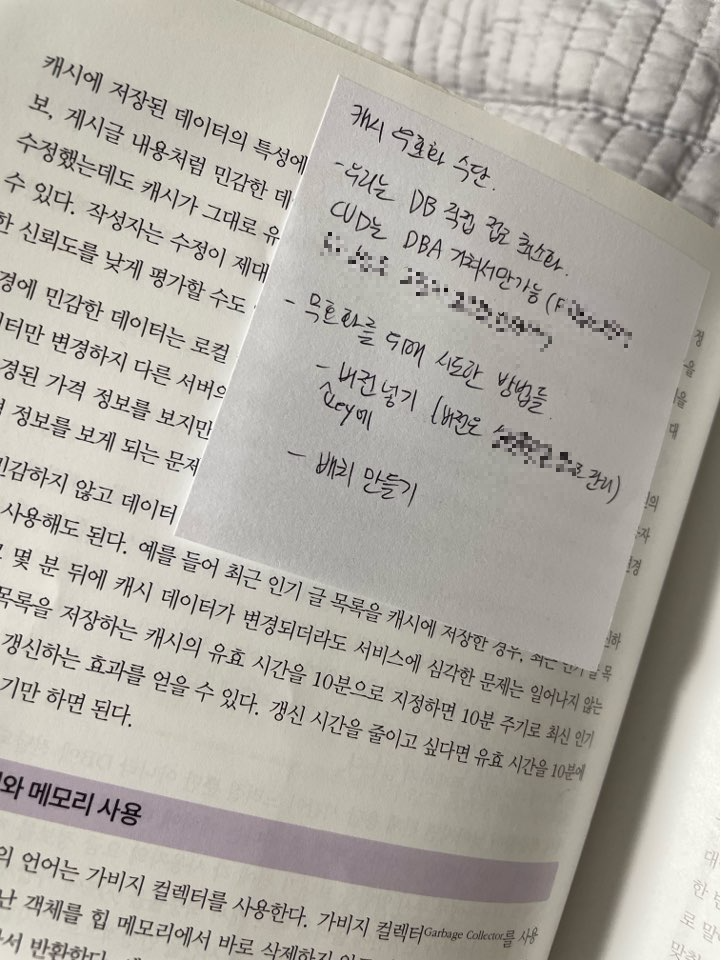 캐시에 저장된 데이터의 특성에
보, 게시글 내용처럼 민감한 데
수정했는데도 캐시가 그대로 유
수 있다. 작성자는 수정이 제대
한 신뢰도를 낮게 평가할 수도
경에 민감한 데이터는 로컬
터만 변경하지 다른 서버의
경된 가격 정보를 보지만
정보를 보게 되는 문제
민감하지 않고 데이터
사용해도 된다. 예를 들어 최근 인기 글 목록을 캐시에 저장한 경우, 최근 인기 글 목
몇 분 뒤에 캐시 데이터가 변경되더라도 서비스에 심각한 문제는 일어나지 않는
목록을 저장하는 캐시의 유효 시간을 10분으로 지정하면 10분 주기로 최신 인기
갱신하는 효과를 얻을 수 있다. 갱신 시간을 줄이고 싶다면 유효 시간을 10분에
기만 하면 된다.
캐시 무효화 수단.
- 우리는 DB 직접 접근 최소화.
CUD는 DBA 거쳐서만 가능 (
- 무효화를 위해 시도한 방법들.
- 버전넣기 (버전은 관리)
key에
- 배치 만들기
와 메모리 사용
의 언어는 가비지 컬렉터를 사용한다. 가비지 컬렉터Garbage Collector를 사용
난 객체를 힙 메모리에서 바로 삭제하지
반환한다.